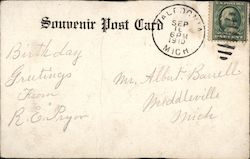 Souvenir Post Card
CALEDONIA
SEP
6 PM
1910
MICH
Birthday
Greetings
From
R. E. Pryor
Mr. Albert Barrell
Middleville
Mich